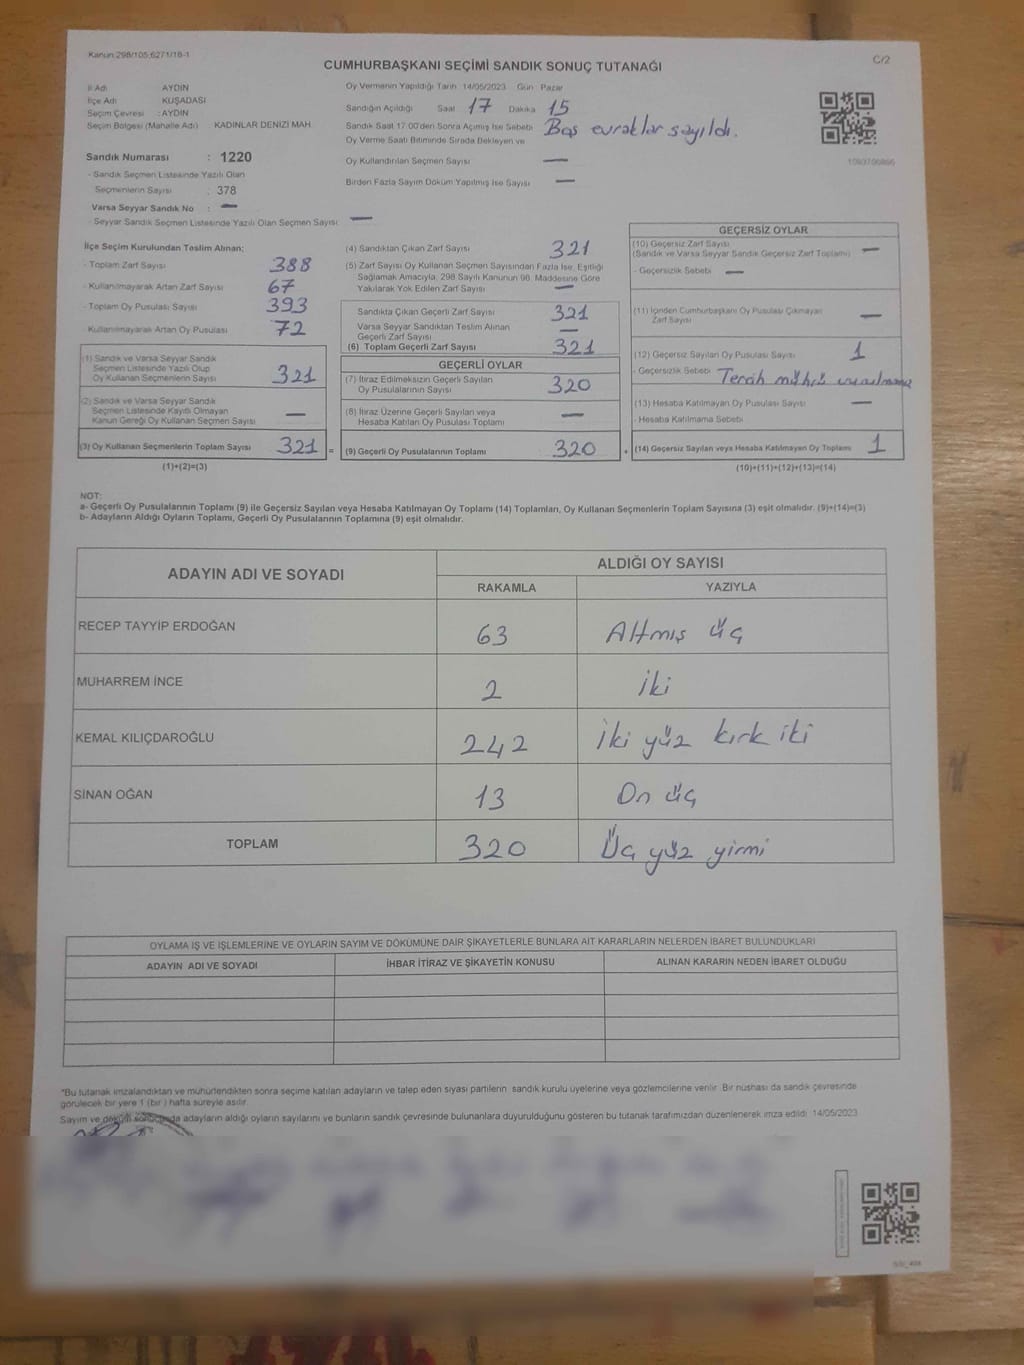 Kanun:298/105;6271/18-1
C/2
CUMHURBAŞKANI SEÇİMİ SANDIK SONUÇ TUTANAĞI
İl Adı AYDIN
İlçe Adı KUŞADASI
Seçim Çevresi : AYDIN
Seçim Bölgesi (Mahalle Adı) KADINLAR DENİZİ MAH.
Sandık Numarası : 1220
- Sandık Seçmen Listesinde Yazılı Olan
Seçmenlerin Sayısı : 378
Varsa Seyyar Sandık No : —
- Seyyar Sandık Seçmen Listesinde Yazılı Olan Seçmen Sayısı: —
Oy Vermenin Yapıldığı Tarih 14/05/2023 Gün Pazar
Sandığın Açıldığı Saat 17 Dakika 15
Sandık Saat 17.00'den Sonra Açılmış İse Sebebi Boş evraklar sayıldı.
Oy Verme Saati Bitiminde Sırada Bekleyen ve
Oy Kullandırılan Seçmen Sayısı —
Birden Fazla Sayım Döküm Yapılmış İse Sayısı —
İlçe Seçim Kurulundan Teslim Alınan;
- Toplam Zarf Sayısı 388
- Kullanılmayarak Artan Zarf Sayısı 67
- Toplam Oy Pusulası Sayısı 393
- Kullanılmayarak Artan Oy Pusulası 72
(1) Sandık ve Varsa Seyyar Sandık
Seçmen Listesinde Yazılı Olup
Oy Kullanan Seçmenlerin Sayısı 321
(2) Sandık ve Varsa Seyyar Sandık
Seçmen Listesinde Kayıtlı Olmayan
Kanun Gereği Oy Kullanan Seçmen Sayısı —
(3) Oy Kullanan Seçmenlerin Toplam Sayısı 321 =
(1)+(2)=(3)
(4) Sandıktan Çıkan Zarf Sayısı 321
(5) Zarf Sayısı Oy Kullanan Seçmen Sayısından Fazla İse, Eşitliği
Sağlamak Amacıyla, 298 Sayılı Kanunun 98. Maddesine Göre
Yakılarak Yok Edilen Zarf Sayısı —
Sandıkta Çıkan Geçerli Zarf Sayısı 321
Varsa Seyyar Sandıktan Teslim Alınan
Geçerli Zarf Sayısı —
(6) Toplam Geçerli Zarf Sayısı 321
GEÇERLİ OYLAR
(7) İtiraz Edilmeksizin Geçerli Sayılan
Oy Pusulalarının Sayısı 320
(8) İtiraz Üzerine Geçerli Sayılan veya
Hesaba Katılan Oy Pusulası Toplamı —
(9) Geçerli Oy Pusulalarının Toplamı 320 +
GEÇERSİZ OYLAR
(10) Geçersiz Zarf Sayısı
(Sandık ve Varsa Seyyar Sandık Geçersiz Zarf Toplamı) —
- Geçersizlik Sebebi —
(11) İçinden Cumhurbaşkanı Oy Pusulası Çıkmayan
Zarf Sayısı —
(12) Geçersiz Sayılan Oy Pusulası Sayısı 1
- Geçersizlik Sebebi Tercih mührü vurulmama
(13) Hesaba Katılmayan Oy Pusulası Sayısı —
- Hesaba Katılmama Sebebi
(14) Geçersiz Sayılan veya Hesaba Katılmayan Oy Toplamı 1
(10)+(11)+(12)+(13)=(14)
NOT:
a- Geçerli Oy Pusulalarının Toplamı (9) ile Geçersiz Sayılan veya Hesaba Katılmayan Oy Toplamı (14) Toplamları, Oy Kullanan Seçmenlerin Toplam Sayısına (3) eşit olmalıdır. (9)+(14)=(3)
b- Adayların Aldığı Oyların Toplamı, Geçerli Oy Pusulalarının Toplamına (9) eşit olmalıdır.
ADAYIN ADI VE SOYADI
ALDIĞI OY SAYISI
RAKAMLA YAZIYLA
RECEP TAYYİP ERDOĞAN 63 Altmış üç
MUHARREM İNCE 2 İki
KEMAL KILIÇDAROĞLU 242 İki yüz kırk iki
SİNAN OĞAN 13 On üç
TOPLAM 320 Üç yüz yirmi
OYLAMA İŞ VE İŞLEMLERİNE VE OYLARIN SAYIM VE DÖKÜMÜNE DAİR ŞİKAYETLERLE BUNLARA AİT KARARLARIN NELERDEN İBARET BULUNDUKLARI
ADAYIN ADI VE SOYADI İHBAR İTİRAZ VE ŞİKAYETİN KONUSU ALINAN KARARIN NEDEN İBARET OLDUĞU
*Bu tutanak imzalandıktan ve mühürlendikten sonra seçime katılan adayların ve talep eden siyasi partilerin, sandık kurulu üyelerine veya gözlemcilerine verilir. Bir nüshası da sandık çevresinde
görülecek bir yere 1 (bir ) hafta süreyle asılır.
Sayım ve döküm sonucunda adayların aldığı oyların sayılarını ve bunların sandık çevresinde bulunanlara duyurulduğunu gösteren bu tutanak tarafımızdan düzenlenerek imza edildi. 14/05/2023